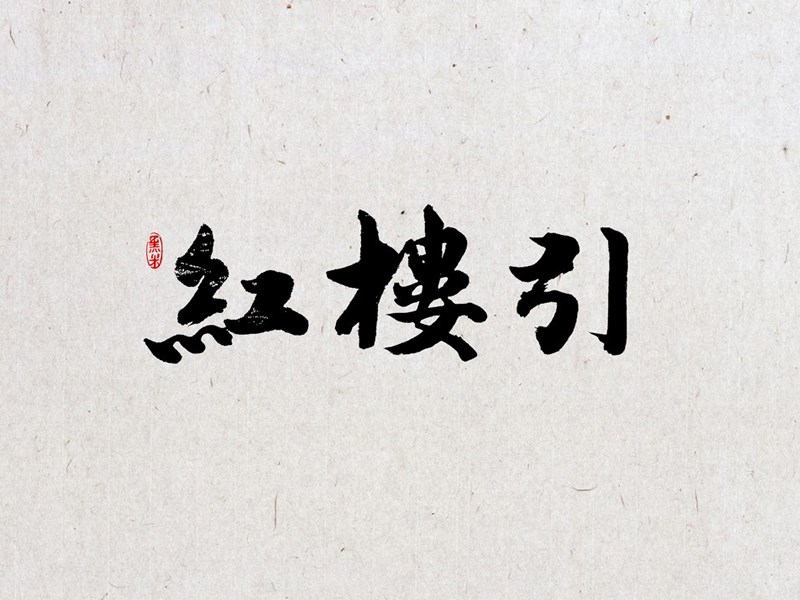 紅樓引